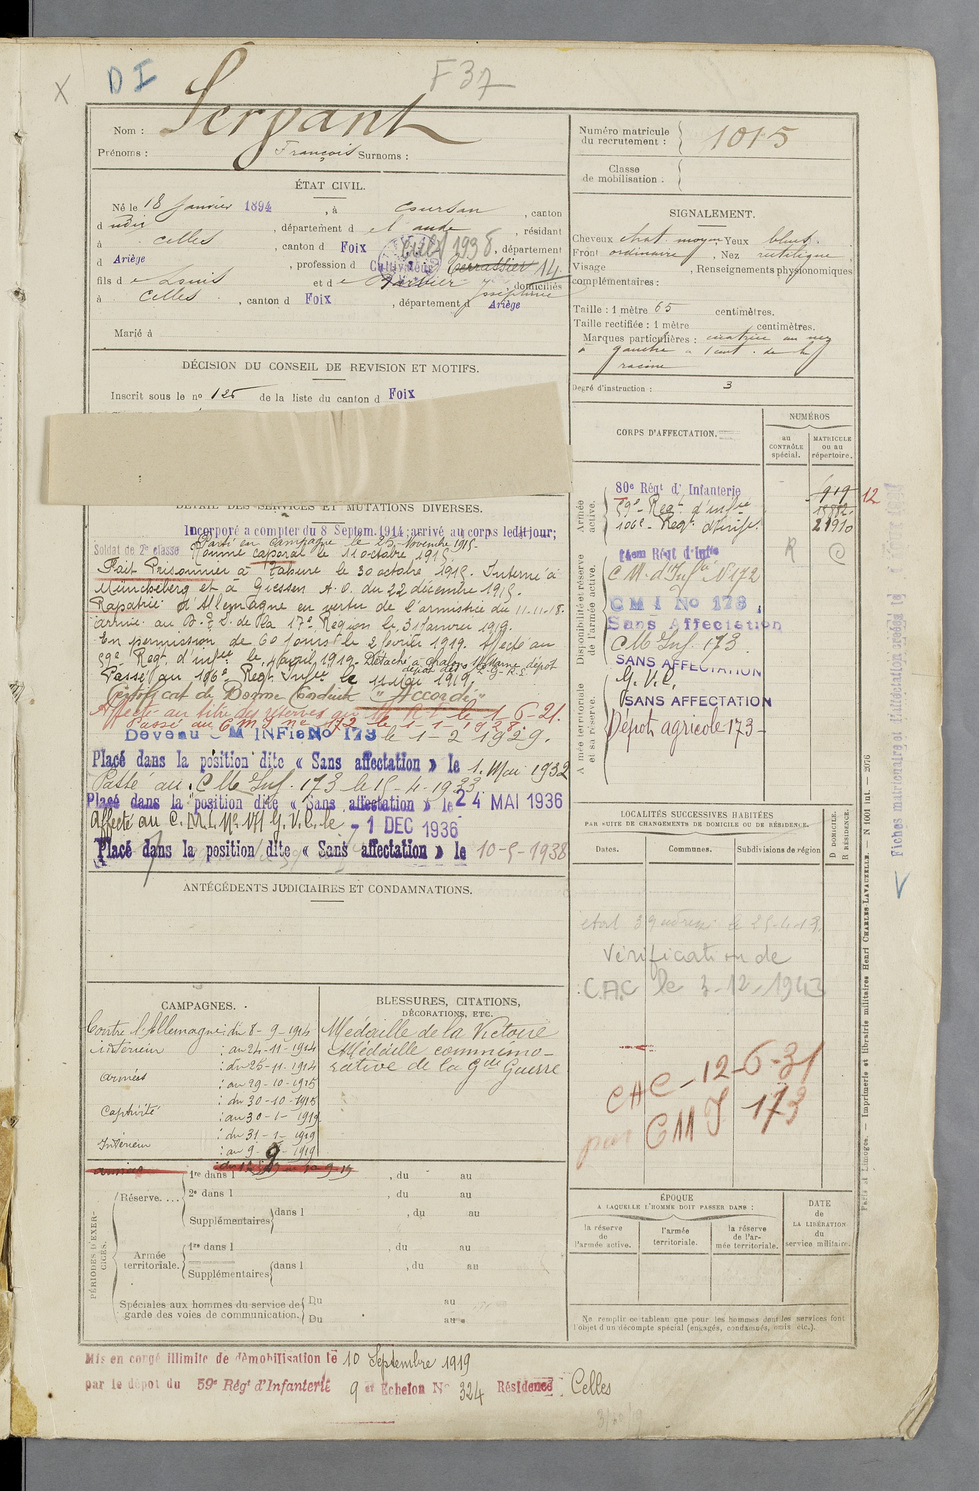 D I
F 37
X
Nom : Servant
Prénoms : François Surnoms :
Numéro matricule du recrutement : 1015
Classe de mobilisation :
ÉTAT CIVIL.
Né le 18 Janvier 1894, à Coursan, canton
d dudit, département d e l'aude, résidant
à Celles, canton d Foix, département
d Ariège, profession d Cultivateur Terrassier 14
fils d e Louis et d e domiciliés
à Celles, canton d Foix, département d Ariège
Marié à
SIGNALEMENT.
Cheveux chat. moyen Yeux bleus.
Front ordinaire, Nez rectiligne
Visage , Renseignements physionomiques
complémentaires :
Taille : 1 mètre 65 centimètres.
Taille rectifiée : 1 mètre centimètres.
Marques particulières : cicatrice au nez
à gauche à 1 cent. de la
racine
Degré d'instruction : 3
DÉCISION DU CONSEIL DE REVISION ET MOTIFS.
Inscrit sous le n° 125 de la liste du canton d Foix
DÉTAIL DES SERVICES ET MUTATIONS DIVERSES.
Incorporé a compter du 8 Septem. 1914; arrivé au corps ledit jour;
Soldat de 2e classe
Parti en campagne le 25 Novembre 1915
Nommé caporal le 11 octobre 1915
Fait Prisonnier à Tahure le 30 octobre 1915. Interné à
Müncheberg et à Giessen A.O. du 22 décembre 1915.
Rapatrié d'Allemagne en vertu de l'armistice du 11-11-18.
arrivé au D. de la 17e Région le 31 Janvier 1919.
En permission de 60 jours le 2 février 1919. Affecté au
59e Regt d'infie le avril 1919. Détaché à dépôt
Passé au 106e Regt Infie le 11 1919
Certificat de Bonne Conduite "Accordé"
Affecté au titre des réserves au R.I. le 1-6-21.
Passé au C M I n° 172 le 1-1-1928.
Devenu C M INFie No 173 le 1-2-1929.
Placé dans la position dite « Sans affectation » le 1. Mai 1932
Passé au C M Inf. 173 le 15-4-1933
Placé dans la position dite « Sans affectation » le 24 MAI 1936
Affecté au C.M.I. N° 171 G.V.C. le 1 DEC 1936
Placé dans la position dite « Sans affectation » le 10-5-1938
CORPS D'AFFECTATION.
NUMÉROS
au CONTRÔLE spécial.
MATRICULE ou au répertoire.
Armée active.
80e Régt d'Infanterie 919 12
59e Regt d'infie
106e Regt d'infie 21910
R
Disponibilité et réserve de l'armée active.
14em Régt d'Infie
C M. d'Infie N° 172
C M I No 173
Sans Affectation
C M Inf. 173.
SANS AFFECTATION
Armée territoriale et sa réserve.
G. V. C.
SANS AFFECTATION
Dépot agricole 173-
LOCALITÉS SUCCESSIVES HABITÉES
PAR SUITE DE CHANGEMENTS DE DOMICILE OU DE RÉSIDENCE.
Dates.
Communes.
Subdivisions de région
D DOMICILE.
R RÉSIDENCE.
Vérification de
C.A.C le 3-12-1943
CAC-12-6-31
par CMI 173
ANTÉCÉDENTS JUDICIAIRES ET CONDAMNATIONS.
CAMPAGNES.
Contre l'Allemagne : du 8-9-1914
intérieur : au 24-11-1914
: du 25-11-1914
armées : au 29-10-1915
: du 30-10-1915
Captivité : au 30-1-1919
: du 31-1-1919
Intérieur : au 9-9-1919
BLESSURES, CITATIONS,
DÉCORATIONS, ETC.
Médaille de la Victoire
Médaille commémo-
rative de la Gde Guerre
PÉRIODES D'EXERCICES.
Réserve....
1re dans l , du au
2e dans l , du au
Supplémentaires dans l , du au
Armée territoriale.
1re dans l , du au
Supplémentaires dans l , du au
Spéciales aux hommes du service de garde des voies de communication.
Du au
Du au
ÉPOQUE
A LAQUELLE L'HOMME DOIT PASSER DANS :
la réserve de l'armée active.
l'armée territoriale.
la réserve de l'armée territoriale.
DATE de LA LIBÉRATION du service militaire.
Ne remplir ce tableau que pour les hommes dont les services font
l'objet d'un décompte spécial (engagés, condamnés, omis, etc.).
Mis en congé illimité de démobilisation le 10 Septembre 1919
par le dépot du 59e Régt d'Infanterie 9 et Echelon N° 324 Résidence : Celles
Paris et Limoges. — Imprimerie et librairie militaires Henri CHARLES-LAVAUZELLE. — N 1001 int. — 2076